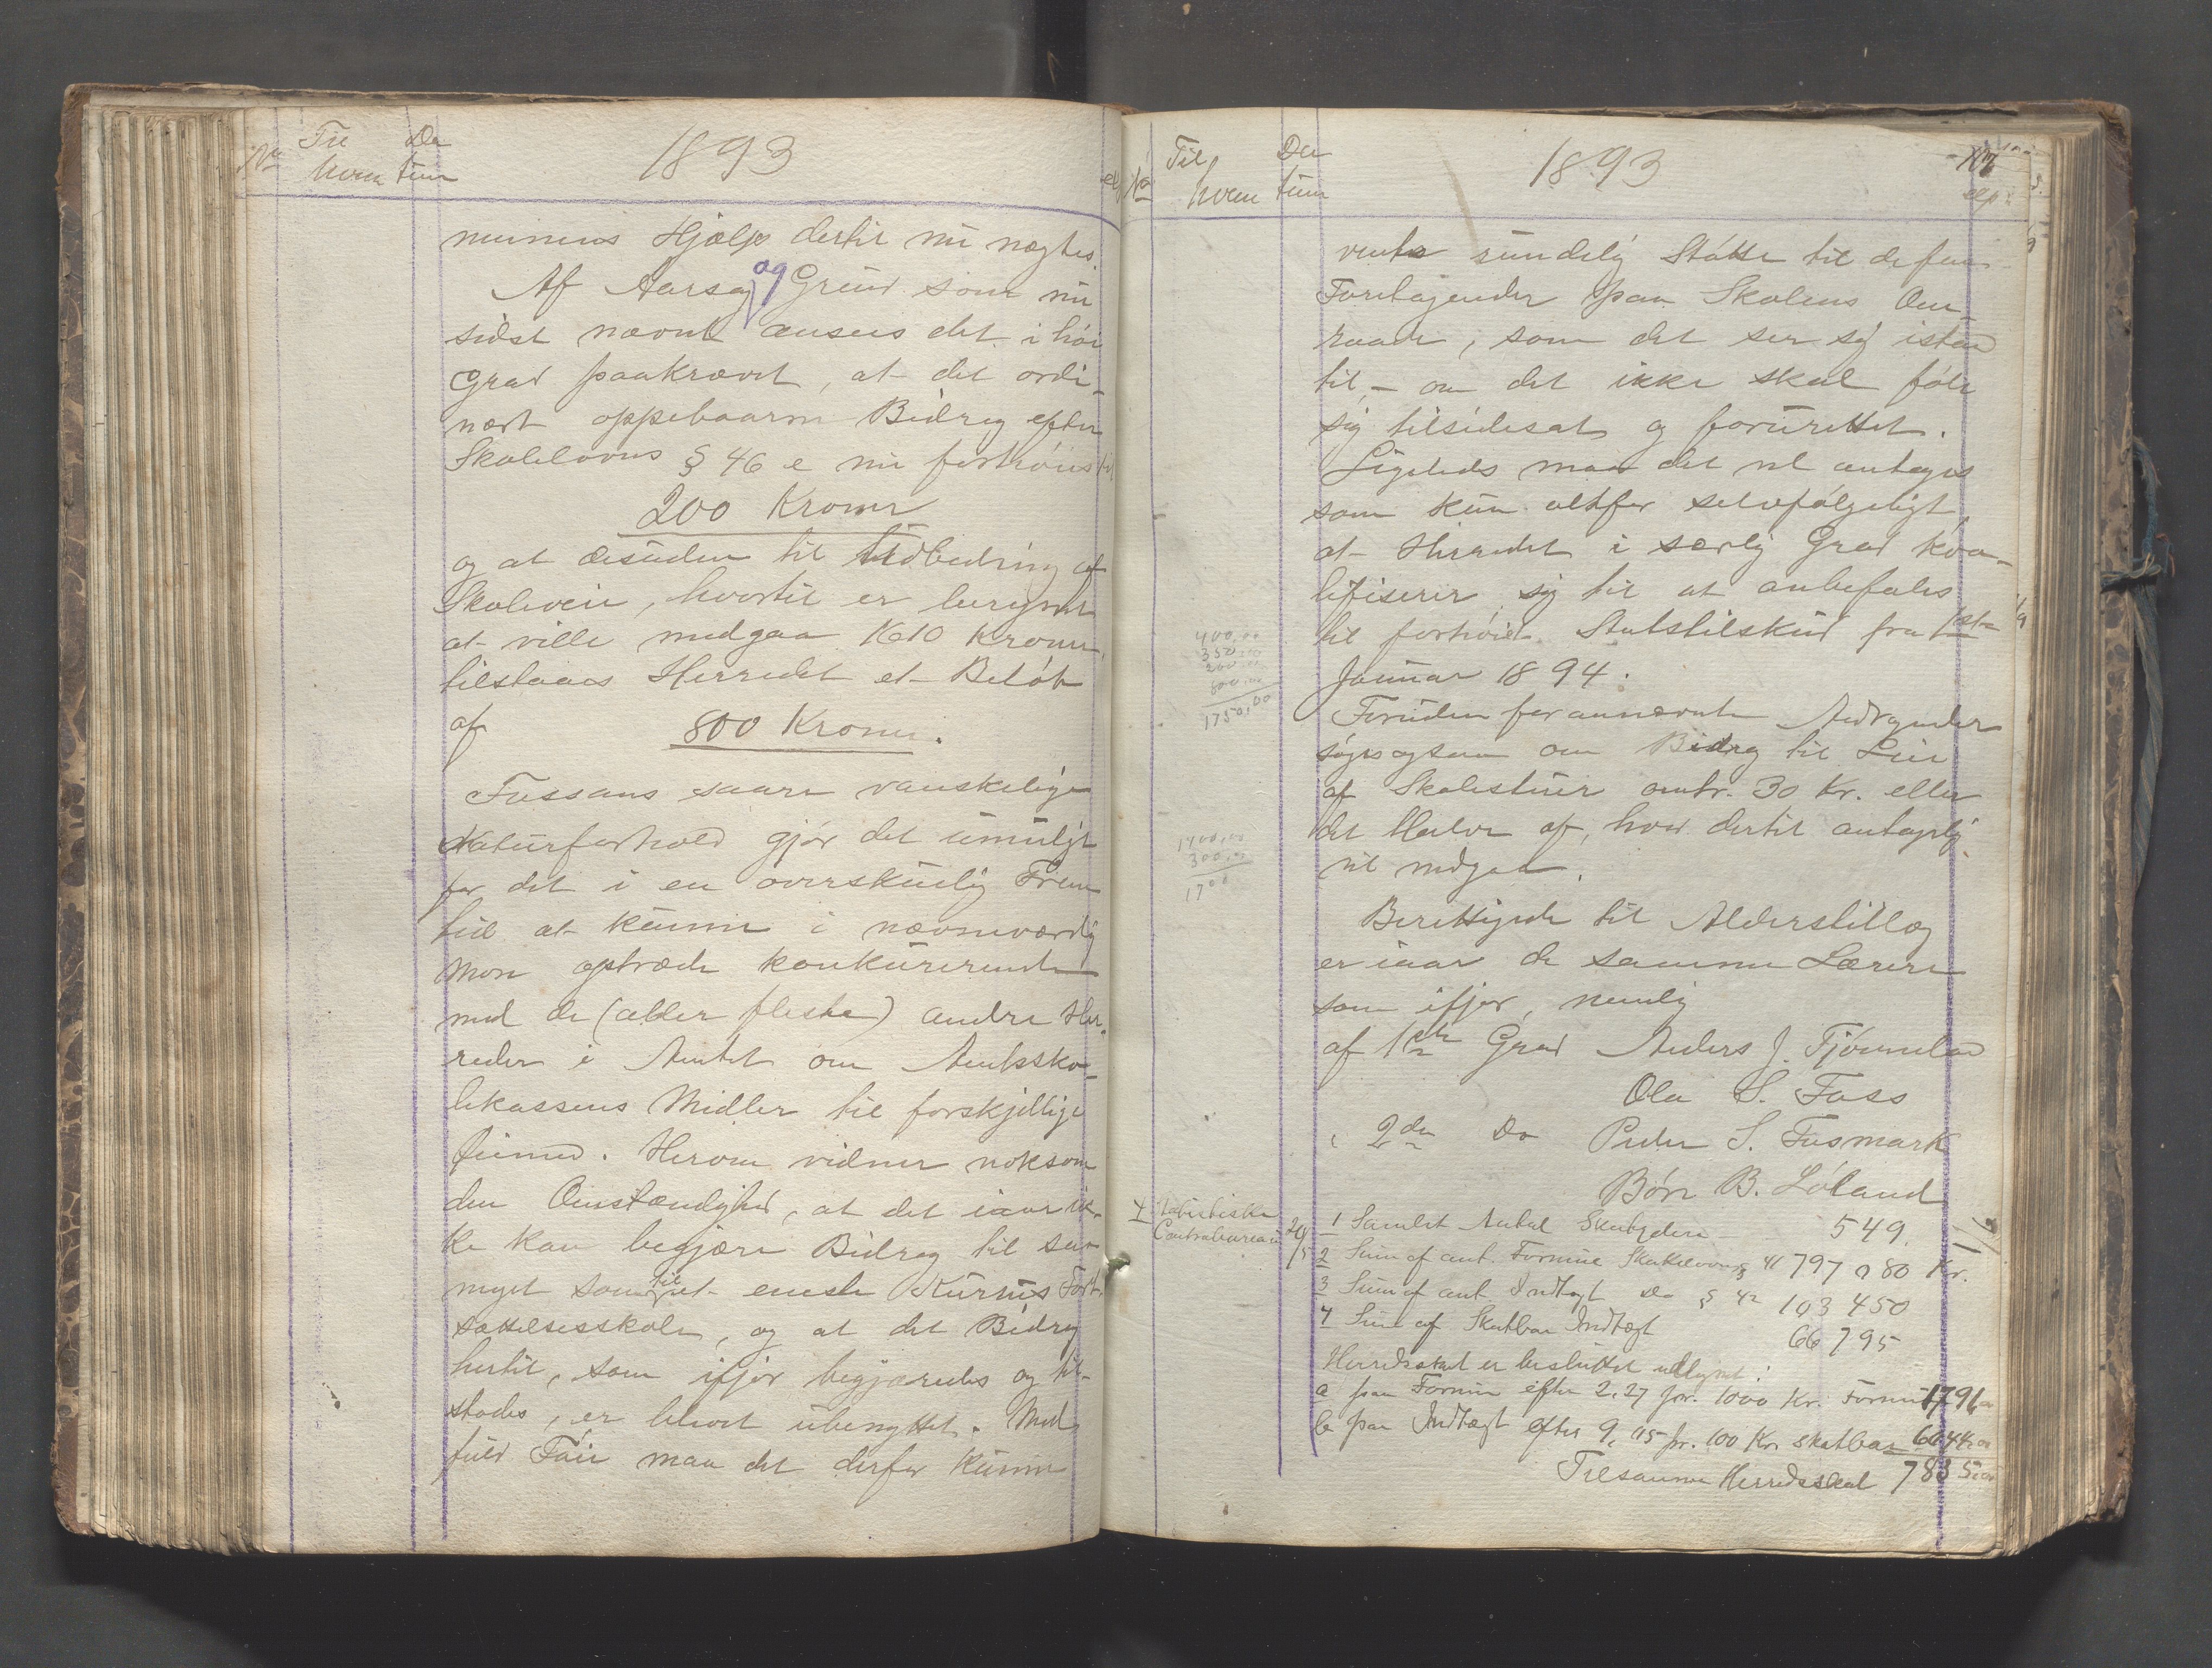 No Til hvem Da tum 1893
munens Hjælp dertil nu nægtes.
Af Aarsag og Grund som nu
sidst nævnt ansees det i høi
Grad paakrævet, at det ordi-
nært oppebaarne Bidrag efter
Skolelovens § 46 e nu forhøies til
200 Kroner
og at desuden til Udbedring af
Skoleveie, hvortil er beregnet
at ville medgaa 1610 Kroner,
tilstaaes Herredet et Beløb
af 800 Kroner.
Fossans saare vanskelige
Naturforhold gjør det umuligt
for det i en overskuelig Frem
tid at kunne i nævneværdig
Mon optræde konkurerende
med de (aller fleste) andre Her-
reder i Amtet om Amtssko-
lekassens Midler til forskjellige
Øiemed. Herom vidner noksom
den Omstændighed, at det iaar ik-
ke kan begjære Bidrag til saa
meget som til et eneste Kursus Fort-
sættelsesskole, og at det Bidrag
hertil, som ifjor begjæredes og til-
stodes, er blevet ubenyttet. Med
fuld Føie maa det derfor kunne
No Til hvem Da tum 1893
vente rundelig Støtte til de faa
Foretagender paa Skolens Om-
raade, som det ser sig istand
til, – om det ikke skal føle
sig tilsidesat og forurettet.
Ligeledes maa det vel antages
som kun altfor selvfølgeligt,
at Herredet i særlig Grad kva-
lifiserer sig til at anbefales
til forhøiet Statstilskud fra 1ste
Januar 1894.
400,00
350,00
200,00
800,00
1750,00
Foruden forannævnte Andragender
søges ogsaa om Bidrag til Leie
af Skolestuer omtr. 30 Kr. eller
det Halve af, hvad dertil antagelig
vil medgaa.
1400,00
300,00
1700
Berettigede til Alderstillæg
er iaar de samme Lærere
som ifjor, nemlig
af 1ste Grad Anders J. Tjørneland
Ola S. Foss
" 2den Do Peder S. Fosmark
Børe B. Løland
Statistiske
Centralbureau 20/5
1 Samlet Antal Skatydere – 549.
2 Sum af ant. Formue Skatteloven § 41 797 080 Kr.
3 Sum af ant. Indtægt Do § 42 103 450
4 Sum af Skatbar Indtægt 66 795
Herredsskat er besluttet udlignet:
a paa Formue efter 2,27 pr. 1000 Kr. Formue 1791
b paa Indtægt efter 9,05 pr. 100 Kr skatbar 6044
Tilsammen Herredsskat 7835